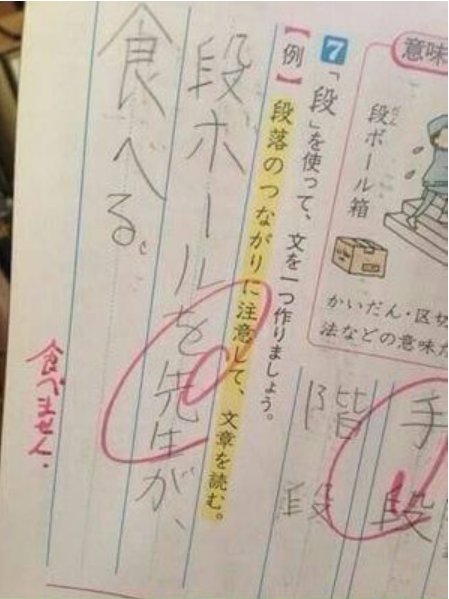 意味
段ボール箱
だん
かいだん・区切
法などの意味だ
手段
階段
7 「段」を使って、文を一つ作りましょう。
【例】段落のつながりに注意して、文章を読む。
段ボールを先生が、
食べる。
食べません。